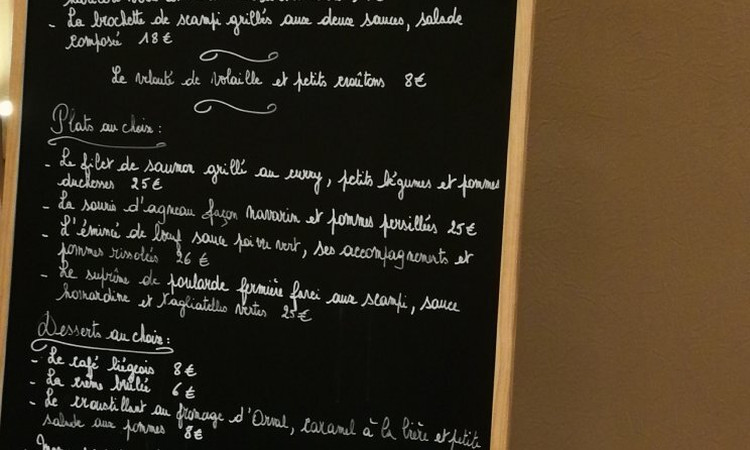 - La brochette de scampi grillés aux deux sauces, salade
composée 18€
Le velouté de volaille et petits croûtons 8€
Plats au choix :
- Le filet de saumon grillé au curry, petits légumes et pommes
duchesses 25€
- La souris d'agneau façon navarin et pommes persillées 25€
- L'émincé de bœuf sauce poivre vert, ses accompagnements et
pommes rissolés 26€
- Le suprême de poularde fermière farci aux scampi, sauce
homardine et tagliatelles vertes 25€
Desserts au choix :
- Le café liégeois 8€
- La crème brûlée 6€
- Le croustillant au fromage d'Orval, caramel à la bière et petite
salade aux pommes 8€